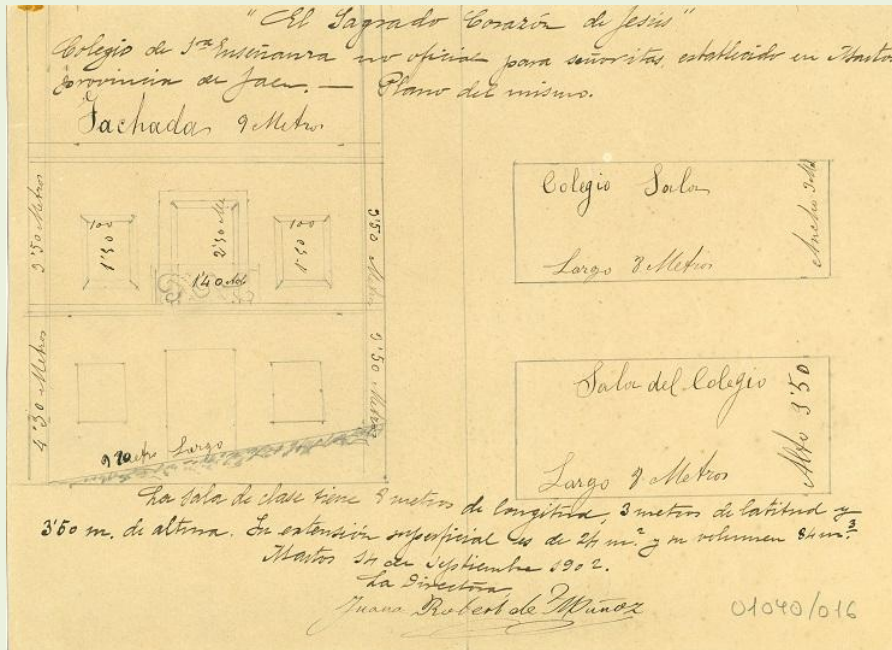 "El Sagrado Corazón de Jesús"
Colegio de 1ra Enseñanza no oficial para señoritas, establecido en Martos
Provincia de Jaen. — Plano del mismo.
Fachada 9 Metros
3'50 Metros
100
1'50
2'50 M
100
1'50
1'40
3'50 Metros
4'50 Metros
3'50 Metros
9 Largo
Colegio Sala
Ancho 3 M
Largo 8 Metros
Sala del Colegio
Alto 3'50
Largo 8 Metros
La sala de clase tiene 8 metros de longitud, 3 metros de latitud y
3'50 m. de altura. Su extensión superficial es de 24 m² y su volumen 84 m³.
Martos 14 de Septiembre 1902.
La Directora
Juana Robert de Muñoz
01040/016